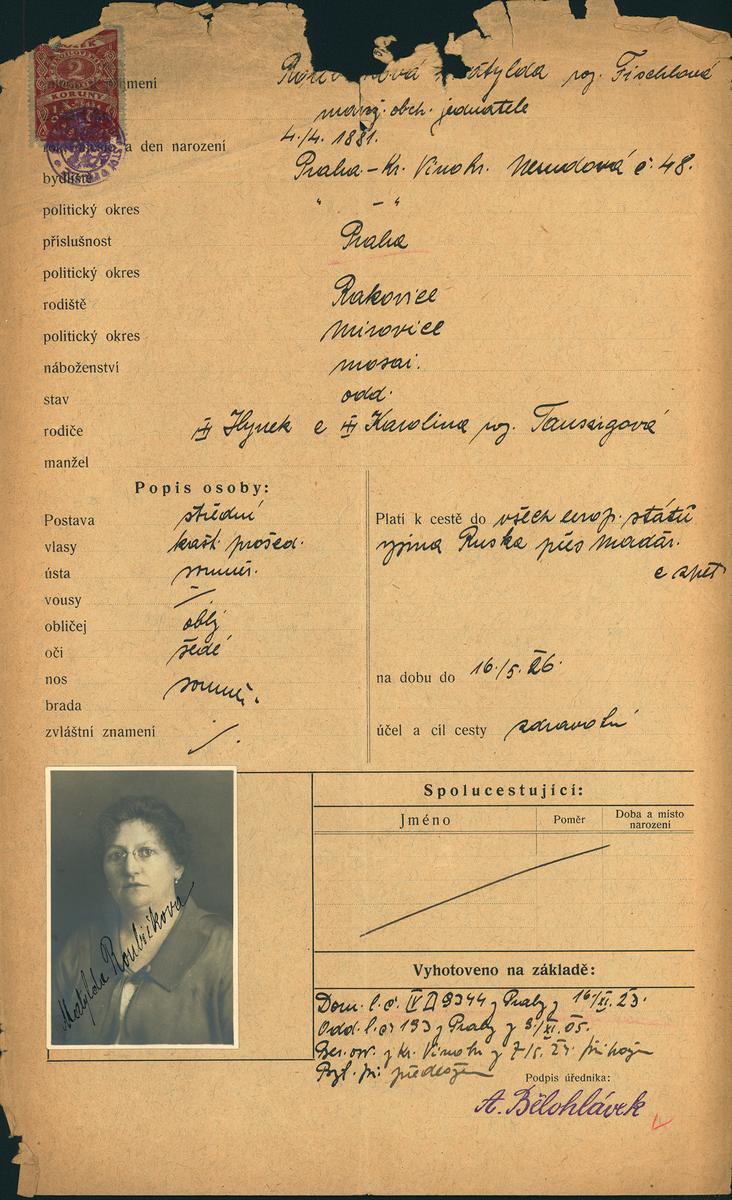 2
KORUNY
jmení
Matylda roz. Fischlová
manž. obch. jednatele
a den narození 4./4. 1881.
bydliště Praha - Kr. Vinohr. Nerudová č. 48.
politický okres " - "
příslušnost Praha
politický okres
rodiště Rakovice
politický okres Mirovice
náboženství mosai.
stav odd.
rodiče Hynek a Karolina roz. Taussigová
manžel
Popis osoby:
Postava střední
vlasy kašt. prošed.
ústa souměr.
vousy
obličej oblý
oči šedé
nos souměr.
brada
zvláštní znamení
Platí k cestě do všech evrop. států
vyjma Ruska přes Maďar.
a zpět
na dobu do 16./5. 26.
účel a cíl cesty zdravotní
Matylda Roubíčková
Spolucestující:
Jméno Poměr Doba a místo narození
Vyhotoveno na základě:
Dom. l. č. 9344 z Prahy z 16/XI. 23.
Odd. l. č. 193 z Prahy z XI. 05.
z Kr. Vinohr. z
předložen
Podpis úředníka:
A. Bělohlávek